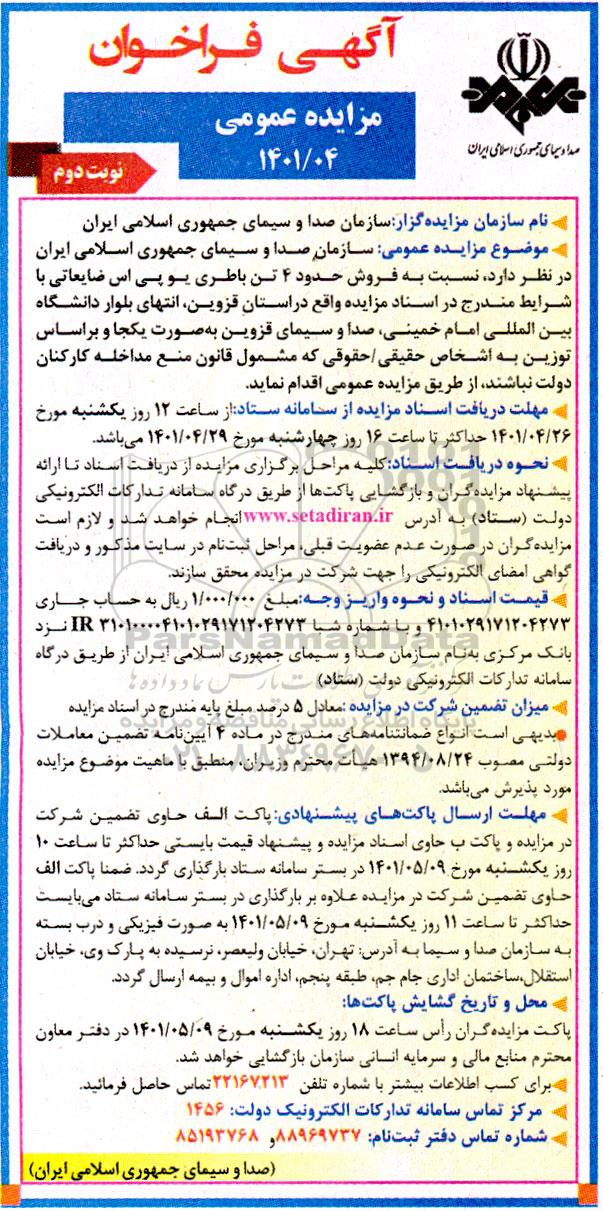 آگهی فراخوان
صدا و سیمای جمهوری اسلامی ایران
مزایده عمومی
۱۴۰۱/۰۴
نوبت دوم
نام سازمان مزایده‌گزار: سازمان صدا و سیمای جمهوری اسلامی ایران
موضوع مزایده عمومی: سازمان صدا و سیمای جمهوری اسلامی ایران
در نظر دارد، نسبت به فروش حدود ۴ تن باطری یو پی اس ضایعاتی با
شرایط مندرج در اسناد مزایده واقع در استان قزوین، انتهای بلوار دانشگاه
بین المللی امام خمینی، صدا و سیمای قزوین به‌صورت یکجا و براساس
توزین به اشخاص حقیقی/حقوقی که مشمول قانون منع مداخله کارکنان
دولت نباشند، از طریق مزایده عمومی اقدام نماید.
مهلت دریافت اسناد مزایده از سامانه ستاد: از ساعت ۱۲ روز یکشنبه مورخ
۱۴۰۱/۰۴/۲۶ حداکثر تا ساعت ۱۶ روز چهارشنبه مورخ ۱۴۰۱/۰۴/۲۹ می‌باشد.
نحوه دریافت اسناد: کلیه مراحل برگزاری مزایده از دریافت اسناد تا ارائه
پیشنهاد مزایده‌گران و بازگشایی پاکت‌ها از طریق درگاه سامانه تدارکات الکترونیکی
دولت (ستاد) به آدرس www.setadiran.ir انجام خواهد شد و لازم است
مزایده‌گران در صورت عدم عضویت قبلی، مراحل ثبت‌نام در سایت مذکور و دریافت
گواهی امضای الکترونیکی را جهت شرکت در مزایده محقق سازند.
قیمت اسناد و نحوه واریز وجه: مبلغ ۱/۰۰۰/۰۰۰ ریال به حساب جاری
۴۱۰۱۰۲۹۱۷۱۲۰۴۲۷۳ و با شماره شبا IR ۳۱۰۱۰۰۰۰۴۱۰۱۰۲۹۱۷۱۲۰۴۲۷۳ نزد
بانک مرکزی به‌نام سازمان صدا و سیمای جمهوری اسلامی ایران از طریق درگاه
سامانه تدارکات الکترونیکی دولت (ستاد)
میزان تضمین شرکت در مزایده: معادل ۵ درصد مبلغ پایه مندرج در اسناد مزایده
بدیهی است انواع ضمانتنامه‌های مندرج در ماده ۴ آیین‌نامه تضمین معاملات
دولتی مصوب ۱۳۹۴/۰۸/۲۴ هیأت محترم وزیران، منطبق با ماهیت موضوع مزایده
مورد پذیرش می‌باشد.
مهلت ارسال پاکت‌های پیشنهادی: پاکت الف حاوی تضمین شرکت
در مزایده و پاکت ب حاوی اسناد مزایده و پیشنهاد قیمت بایستی حداکثر تا ساعت ۱۰
روز یکشنبه مورخ ۱۴۰۱/۰۵/۰۹ در بستر سامانه ستاد بارگذاری گردد. ضمنا پاکت الف
حاوی تضمین شرکت در مزایده علاوه بر بارگذاری در بستر سامانه ستاد می‌بایست
حداکثر تا ساعت ۱۱ روز یکشنبه مورخ ۱۴۰۱/۰۵/۰۹ به صورت فیزیکی و درب بسته
به سازمان صدا و سیما به آدرس: تهران، خیابان ولیعصر، نرسیده به پارک وی، خیابان
استقلال، ساختمان اداری جام جم، طبقه پنجم، اداره اموال و بیمه ارسال گردد.
محل و تاریخ گشایش پاکت‌ها:
پاکت مزایده‌گران رأس ساعت ۱۸ روز یکشنبه مورخ ۱۴۰۱/۰۵/۰۹ در دفتر معاون
محترم منابع مالی و سرمایه انسانی سازمان بازگشایی خواهد شد.
برای کسب اطلاعات بیشتر با شماره تلفن ۲۲۱۶۷۲۱۳ تماس حاصل فرمائید.
مرکز تماس سامانه تدارکات الکترونیک دولت: ۱۴۵۶
شماره تماس دفتر ثبت‌نام: ۸۸۹۶۹۷۳۷ و ۸۵۱۹۳۷۶۸
(صدا و سیمای جمهوری اسلامی ایران)
ParsNamadData
پایگاه اطلاع رسانی مناقصه و مزایده